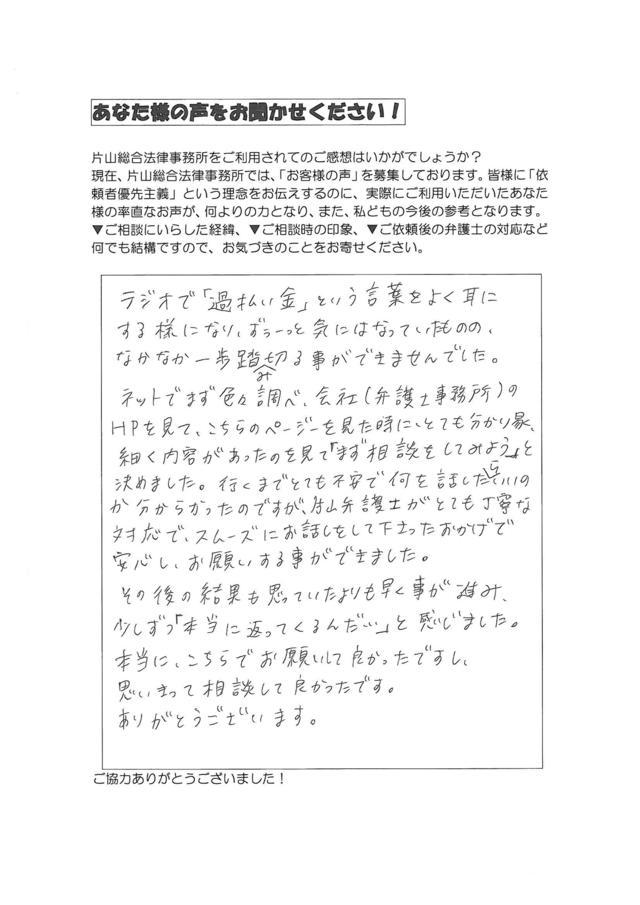 あなた様の声をお聞かせください！
片山総合法律事務所をご利用されてのご感想はいかがでしょうか？
現在、片山総合法律事務所では、「お客様の声」を募集しております。皆様に「依
頼者優先主義」という理念をお伝えするのに、実際にご利用いただいたあなた
様の率直なお声が、何よりの力となり、また、私どもの今後の参考となります。
▼ご相談にいらした経緯、▼ご相談時の印象、▼ご依頼後の弁護士の対応など
何でも結構ですので、お気づきのことをお寄せください。
ラジオで「過払い金」という言葉をよく耳に
する様になり、ずぅーっと気にはなっていたものの、
なかなか一歩踏み切る事ができませんでした。
ネットでまず色々調べ、会社(弁護士事務所)の
HPを見て、こちらのページーを見た時に、とても分かり易、
細く内容があったのを見て「まず相談をしてみよう」と
決めました。行くまでとても不安で何を話したらいいの
か分からかったのですが、片山弁護士がとても丁寧な
対応で、スムーズにお話しをして下さったおかげで
安心し、お願いする事ができました。
その後の結果も思っていたよりも早く事が進み、
少しずつ「本当に返ってくるんだぃ」と感じました。
本当に、こちらでお願いして良かったですし、
思いきって相談して良かったです。
ありがとうございます。
ご協力ありがとうございました！